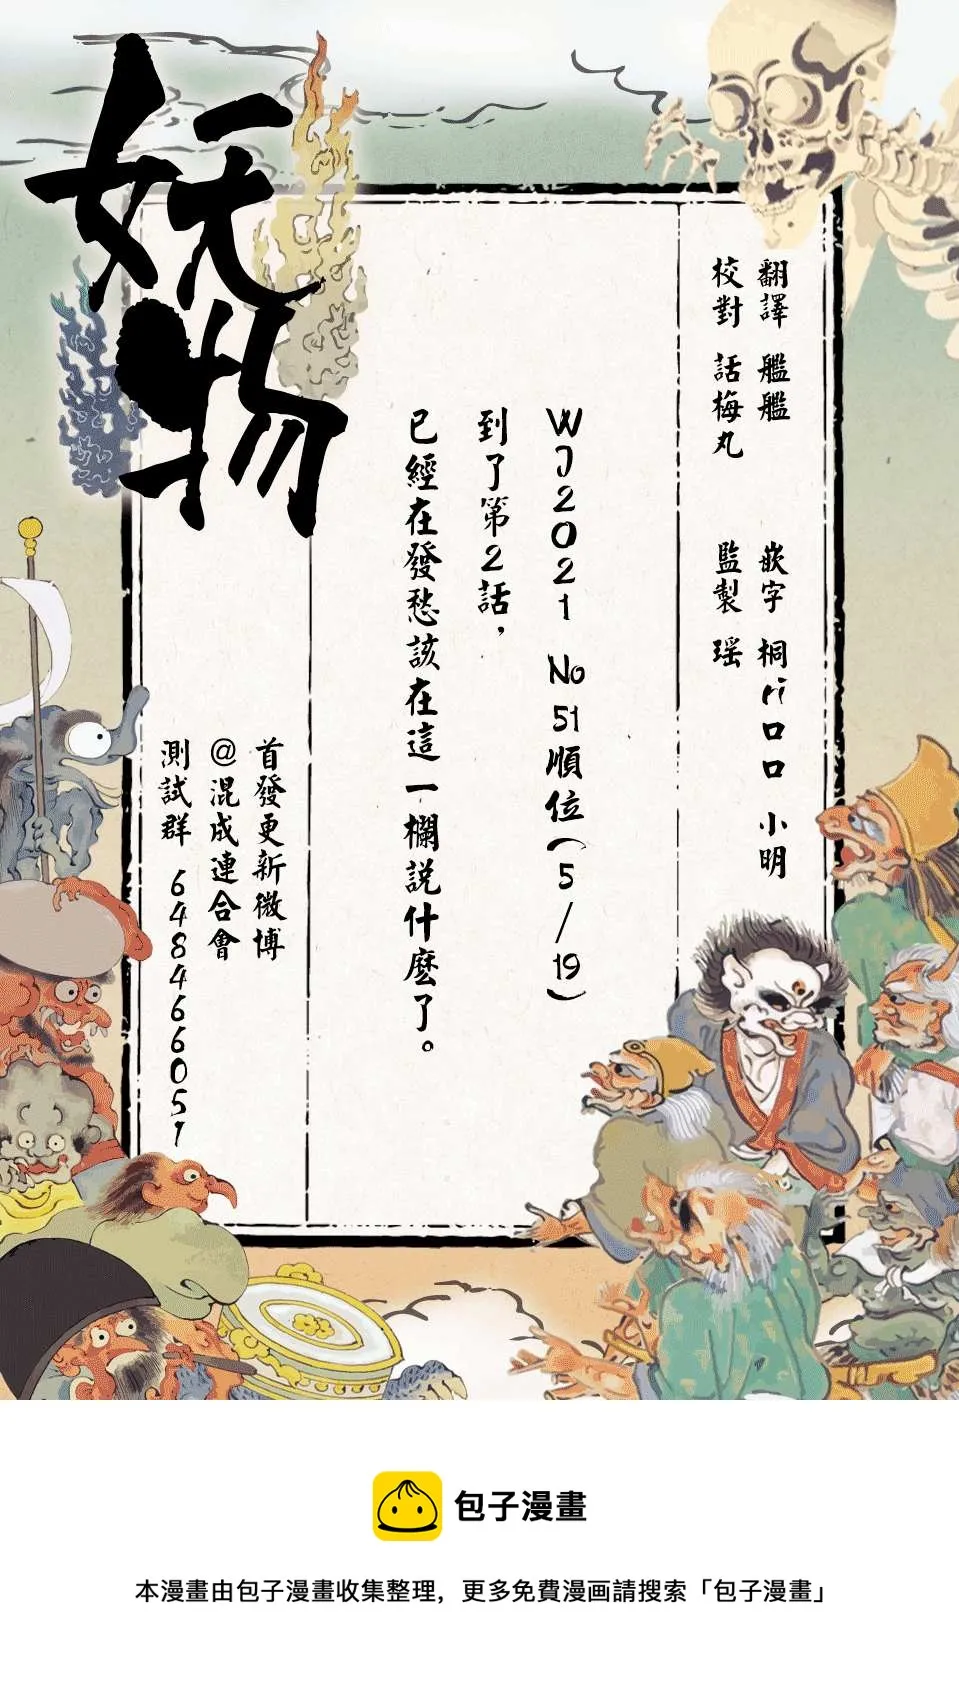 妖物
翻譯 艦艦 嵌字 桐ri口口 小明
校對 話梅丸 監製 瑶
WJ2021 No51順位(5/19)
到了第2話，
已經在發愁該在這一欄説什麽了。
首發更新微博
@混成連合會
測試群 648466051
包子漫畫
本漫畫由包子漫畫收集整理，更多免費漫画請搜索「包子漫畫」